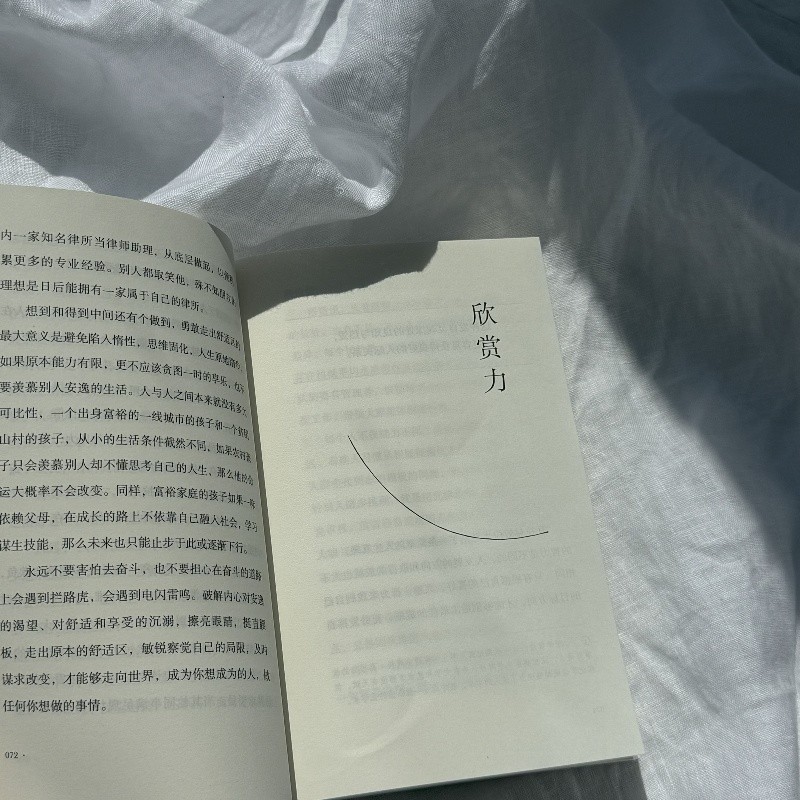 内一家知名律所当律师助理，从底层做起，以便积
累更多的专业经验。别人都取笑他，殊不知他的
理想是日后能拥有一家属于自己的律所。
想到和得到中间还有个做到，勇敢走出舒适区的
最大意义是避免陷入惰性，思维固化，人生原地踏步。
如果原本能力有限，更不应该贪图一时的享乐，也不
要羡慕别人安逸的生活。人与人之间本来就没有多大
可比性，一个出身富裕的一线城市的孩子和一个
山村的孩子，从小的生活条件截然不同，如果农村孩
子只会羡慕别人却不懂思考自己的人生，那么他的命
运大概率不会改变。同样，富裕家庭的孩子如果一味
依赖父母，在成长的路上不依靠自己融入社会，学习
谋生技能，那么未来也只能止步于此或逐渐下行。
永远不要害怕去奋斗，也不要担心在奋斗的道路
上会遇到拦路虎，会遇到电闪雷鸣。破解内心对安逸
的渴望、对舒适和享受的沉溺，擦亮眼睛，挺直腰
板，走出原本的舒适区，敏锐察觉自己的局限，及时
谋求改变，才能够走向世界，成为你想成为的人，做
任何你想做的事情。
072 ·
欣赏力